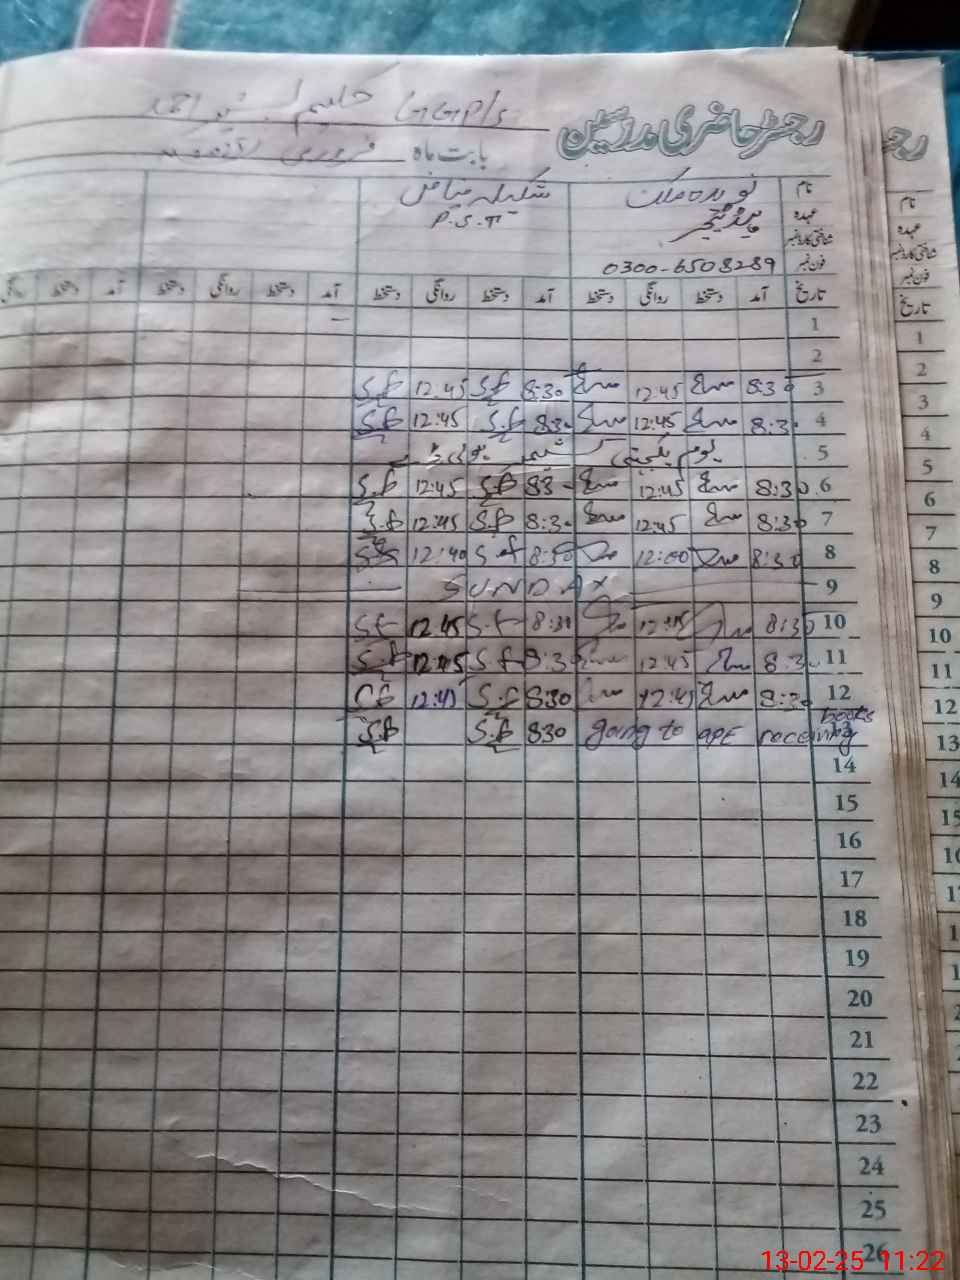 رجسٹر حاضری مدرسین GGP/S حلیم
بابت ماہ فروری
نام نویدہ ملک شکیلہ فیاض
عہدہ ہیڈ ٹیچر P.S.T
شناختی کارڈ نمبر
فون نمبر 0300-6508289
تاریخ آمد دستخط روانگی دستخط آمد دستخط روانگی دستخط آمد دستخط روانگی دستخط آمد دستخط روانگی
1
2
3 8:30 12:45 8:30 S.f 12:45 S.f
4 8:30 12:45 830 S.f 12:45 S.f
5 یوم یکجہتی کشمیر
6 8:30 12:45 830 S.f 12:45 S.f
7 8:30 12:45 8:30 S.f 12:45 S.f
8 8:30 12:00 8:30 S.f 12:40
9 SUNDAY
10 8:30 12:45 8:30 S.f 12:45 S.f
11 8:30 12:45 8:30 S.f 12:45 S.f
12 8:30 12:45 8:30 S.f 12:45
books
13 going to receiving 830 S.f S.f
14
15
16
17
18
19
20
21
22
23
24
25
26
رجـ
نام
عہدہ
شناختی کارڈ نمبر
فون نمبر
تاریخ
1
2
3
4
5
6
7
8
9
10
11
12
13
14
15
13-02-25 11:22